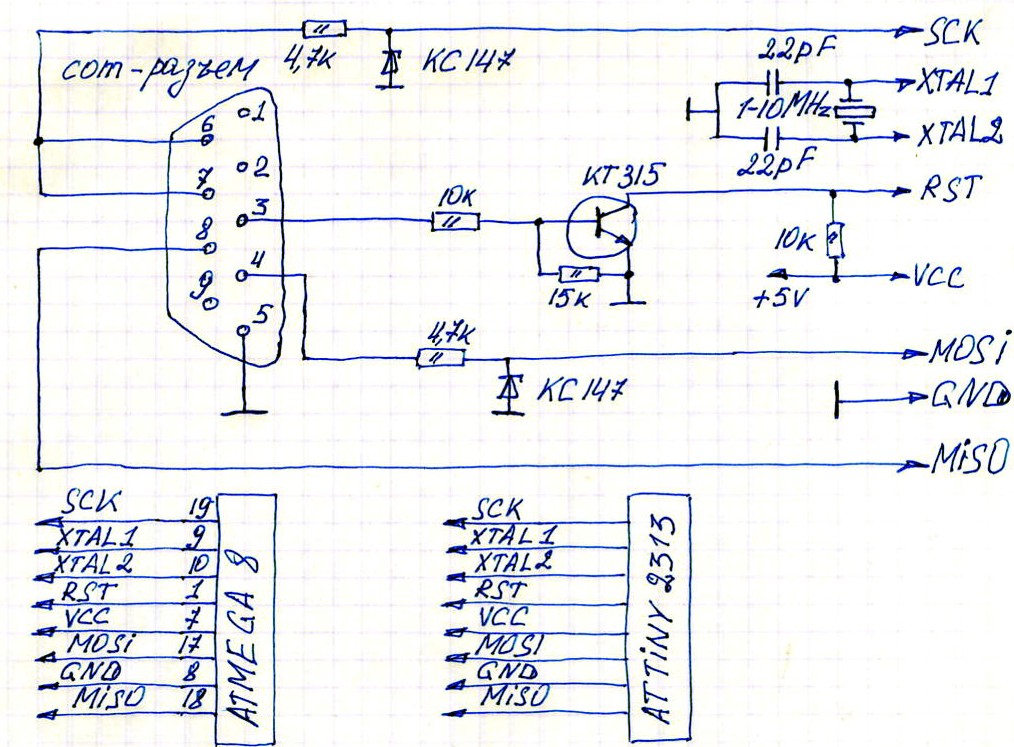 4,7к
КС147
SCK
com-разъем
22pF
XTAL1
1-10MHz
XTAL2
22pF
1
6
2
7
3
8
4
9
5
10к
КТ315
RST
15к
10к
+5V
VCC
4,7к
КС147
MOSi
GND
MiSO
SCK 19
XTAL1 9
XTAL2 10
RST 1
VCC 7
MOSi 17
GND 8
MiSO 18
ATMEGA 8
SCK
XTAL1
XTAL2
RST
VCC
MOSI
GND
MiSO
ATTiNY 2313